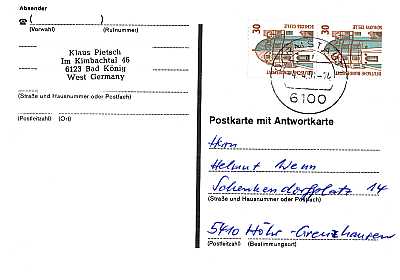 Absender
(Vorwahl) (Rufnummer)
Klaus Pietsch
Im Kimbachtal 46
6123 Bad König
West Germany
(Straße und Hausnummer oder Postfach)
(Postleitzahl) (Ort)
30 30
SCHLOSS CELLE SCHLOSS CELLE
DEUTSCHE BUNDESPOST
6100
Postkarte mit Antwortkarte
Herrn
Helmut Wenn
Schenkendorfplatz 14
(Straße und Hausnummer oder Postfach)
5410 Höhr-Grenzhausen
(Postleitzahl) (Bestimmungsort)